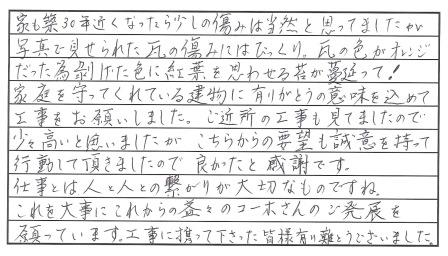 家も築30年近くなったら少しの傷みは当然と思ってましたが
写真で見せられた瓦の傷みにはびっくり。瓦の色がオレンジ
だった為剥げた色に紅葉を思わせる苔が蔓延って!
家庭を守ってくれている建物に有りがとうの意味を込めて
工事をお願いしました。ご近所の工事も見てましたので
少々高いと思いましたが こちらからの要望も誠意を持って
行動して頂きましたので 良かったと感謝です。
仕事とは人と人との繋がりが大切なものですね。
これを大事にこれからの益々のコーホさんのご発展を
願っています。工事に携って下さった皆様有り難とうございました。